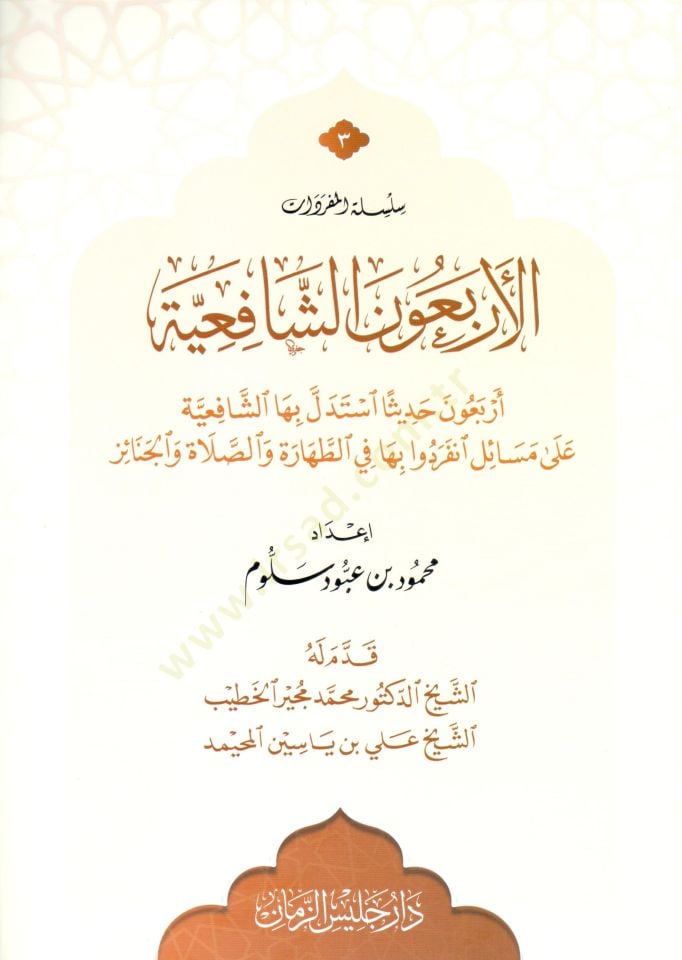 ٣
سِلْسِلَة المُفرَدَات
الأَرْبَعُونَ الشَّافِعِيَّة
أَرْبَعُونَ حَدِيثًا ٱسْتَدَلَّ بِهَا ٱلشَّافِعِيَّة
عَلَىٰ مَسَائِل ٱنفَرَدُوا بِهَا فِي ٱلطَّهَارَة وَٱلصَّلَاة وَٱلجَنَائِز
إِعْدَاد
محمُود بن عبُّود سَلُّوم
قَدَّمَ لَهُ
ٱلشَّيخ ٱلدّكتُور محمَّد مُجِير ٱلخَطِيب
ٱلشَّيخ عَلي بن يَاسِين ٱلمحَيمد
دَار جَلِيس الزَّمَان
www.irsad.com.tr